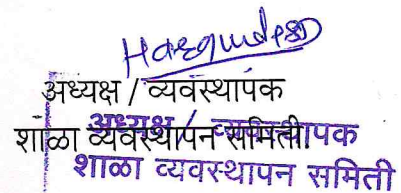 अध्यक्ष / व्यवस्थापक
शाळा व्यवस्थापन समिती
अध्यक्ष / व्यवस्थापक
शाळा व्यवस्थापन समिती